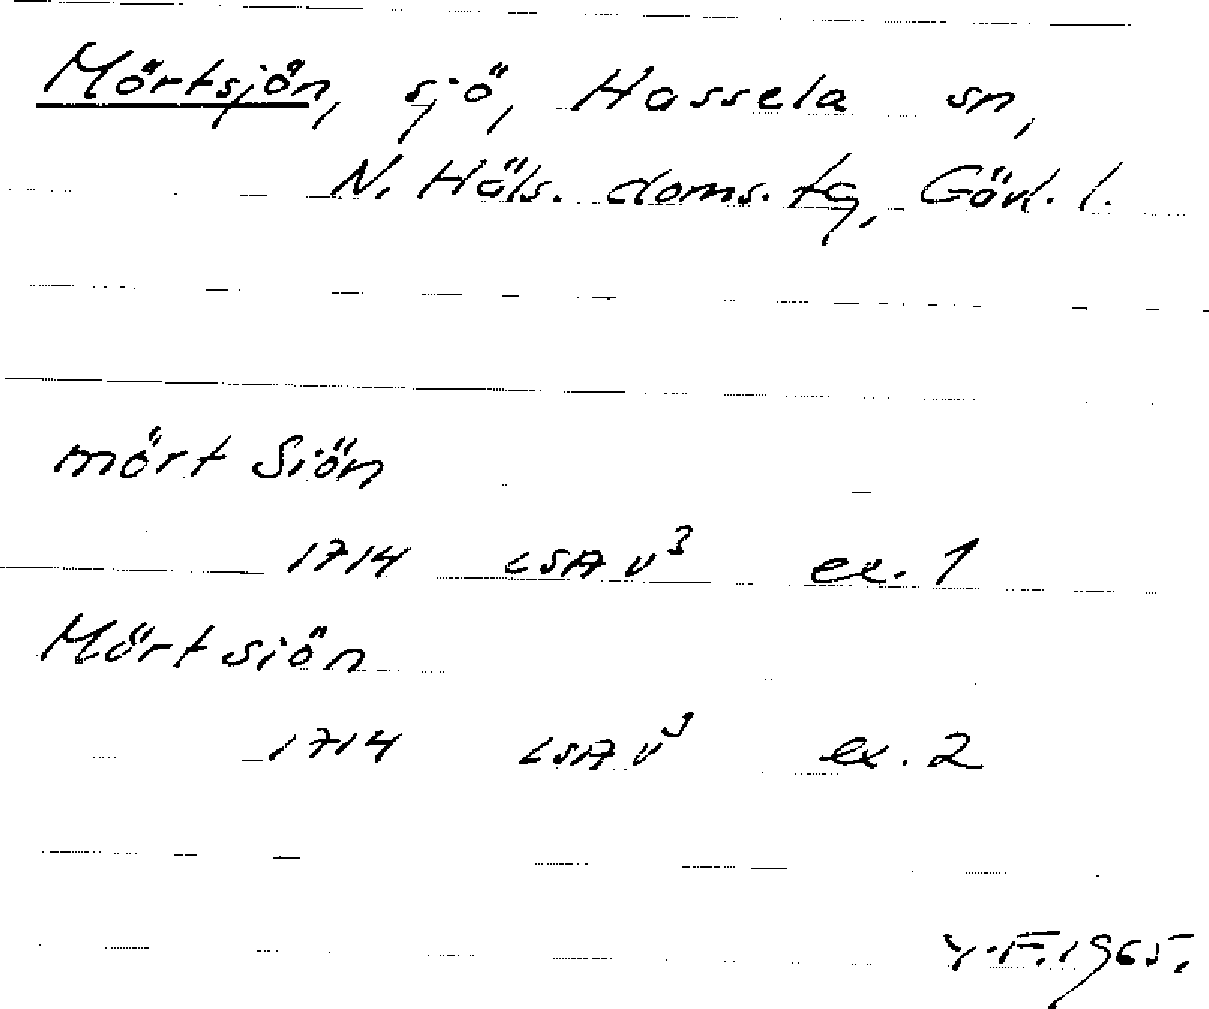 Mörtsjön, sjö, Hassela sn,
N. Häls. doms. tg, Gävl. l.
mört Siön
1714 LSA V³ ex. 1
Mörtsiön
1714 LSA V³ ex. 2
Y.F. 1965.